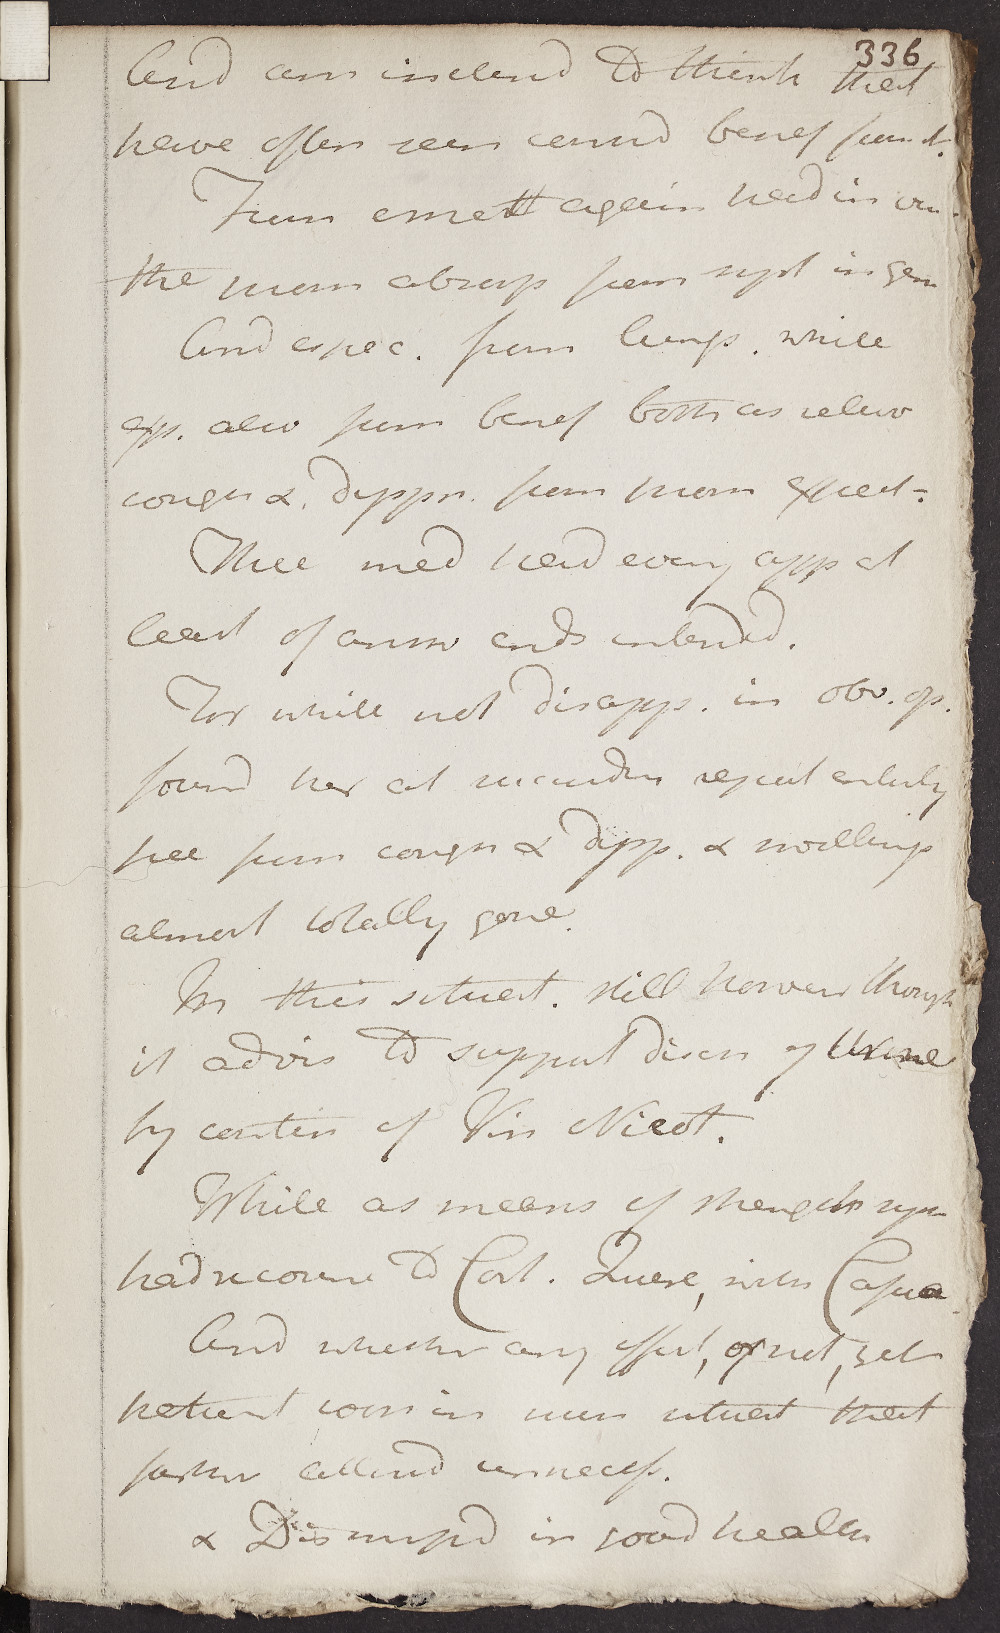 336
And am inclend to think that
have often seen consid benef from it.
From emett again had in view
the prom absorp from syst in gen
And espec. from lungs. while
exp. also from benef both as reliev
cough &. dyspn. from prom expect-
These med had every app at
least of answ ends intend.
For while not disapp. in obv. op.
found her at succeedin report entirely
free from cough & dysp. & swellings
almost totally gone.
In this situat. still howev though
it advis to support disch of Urine
by contin of Vin Nicot.
While as means of strength syst
had recourse to Cort. Querc, with Capua
And whether any effect, or not, yet
patient soon in such situat that
farther attend unnecess.
& Dismiss'd in good health